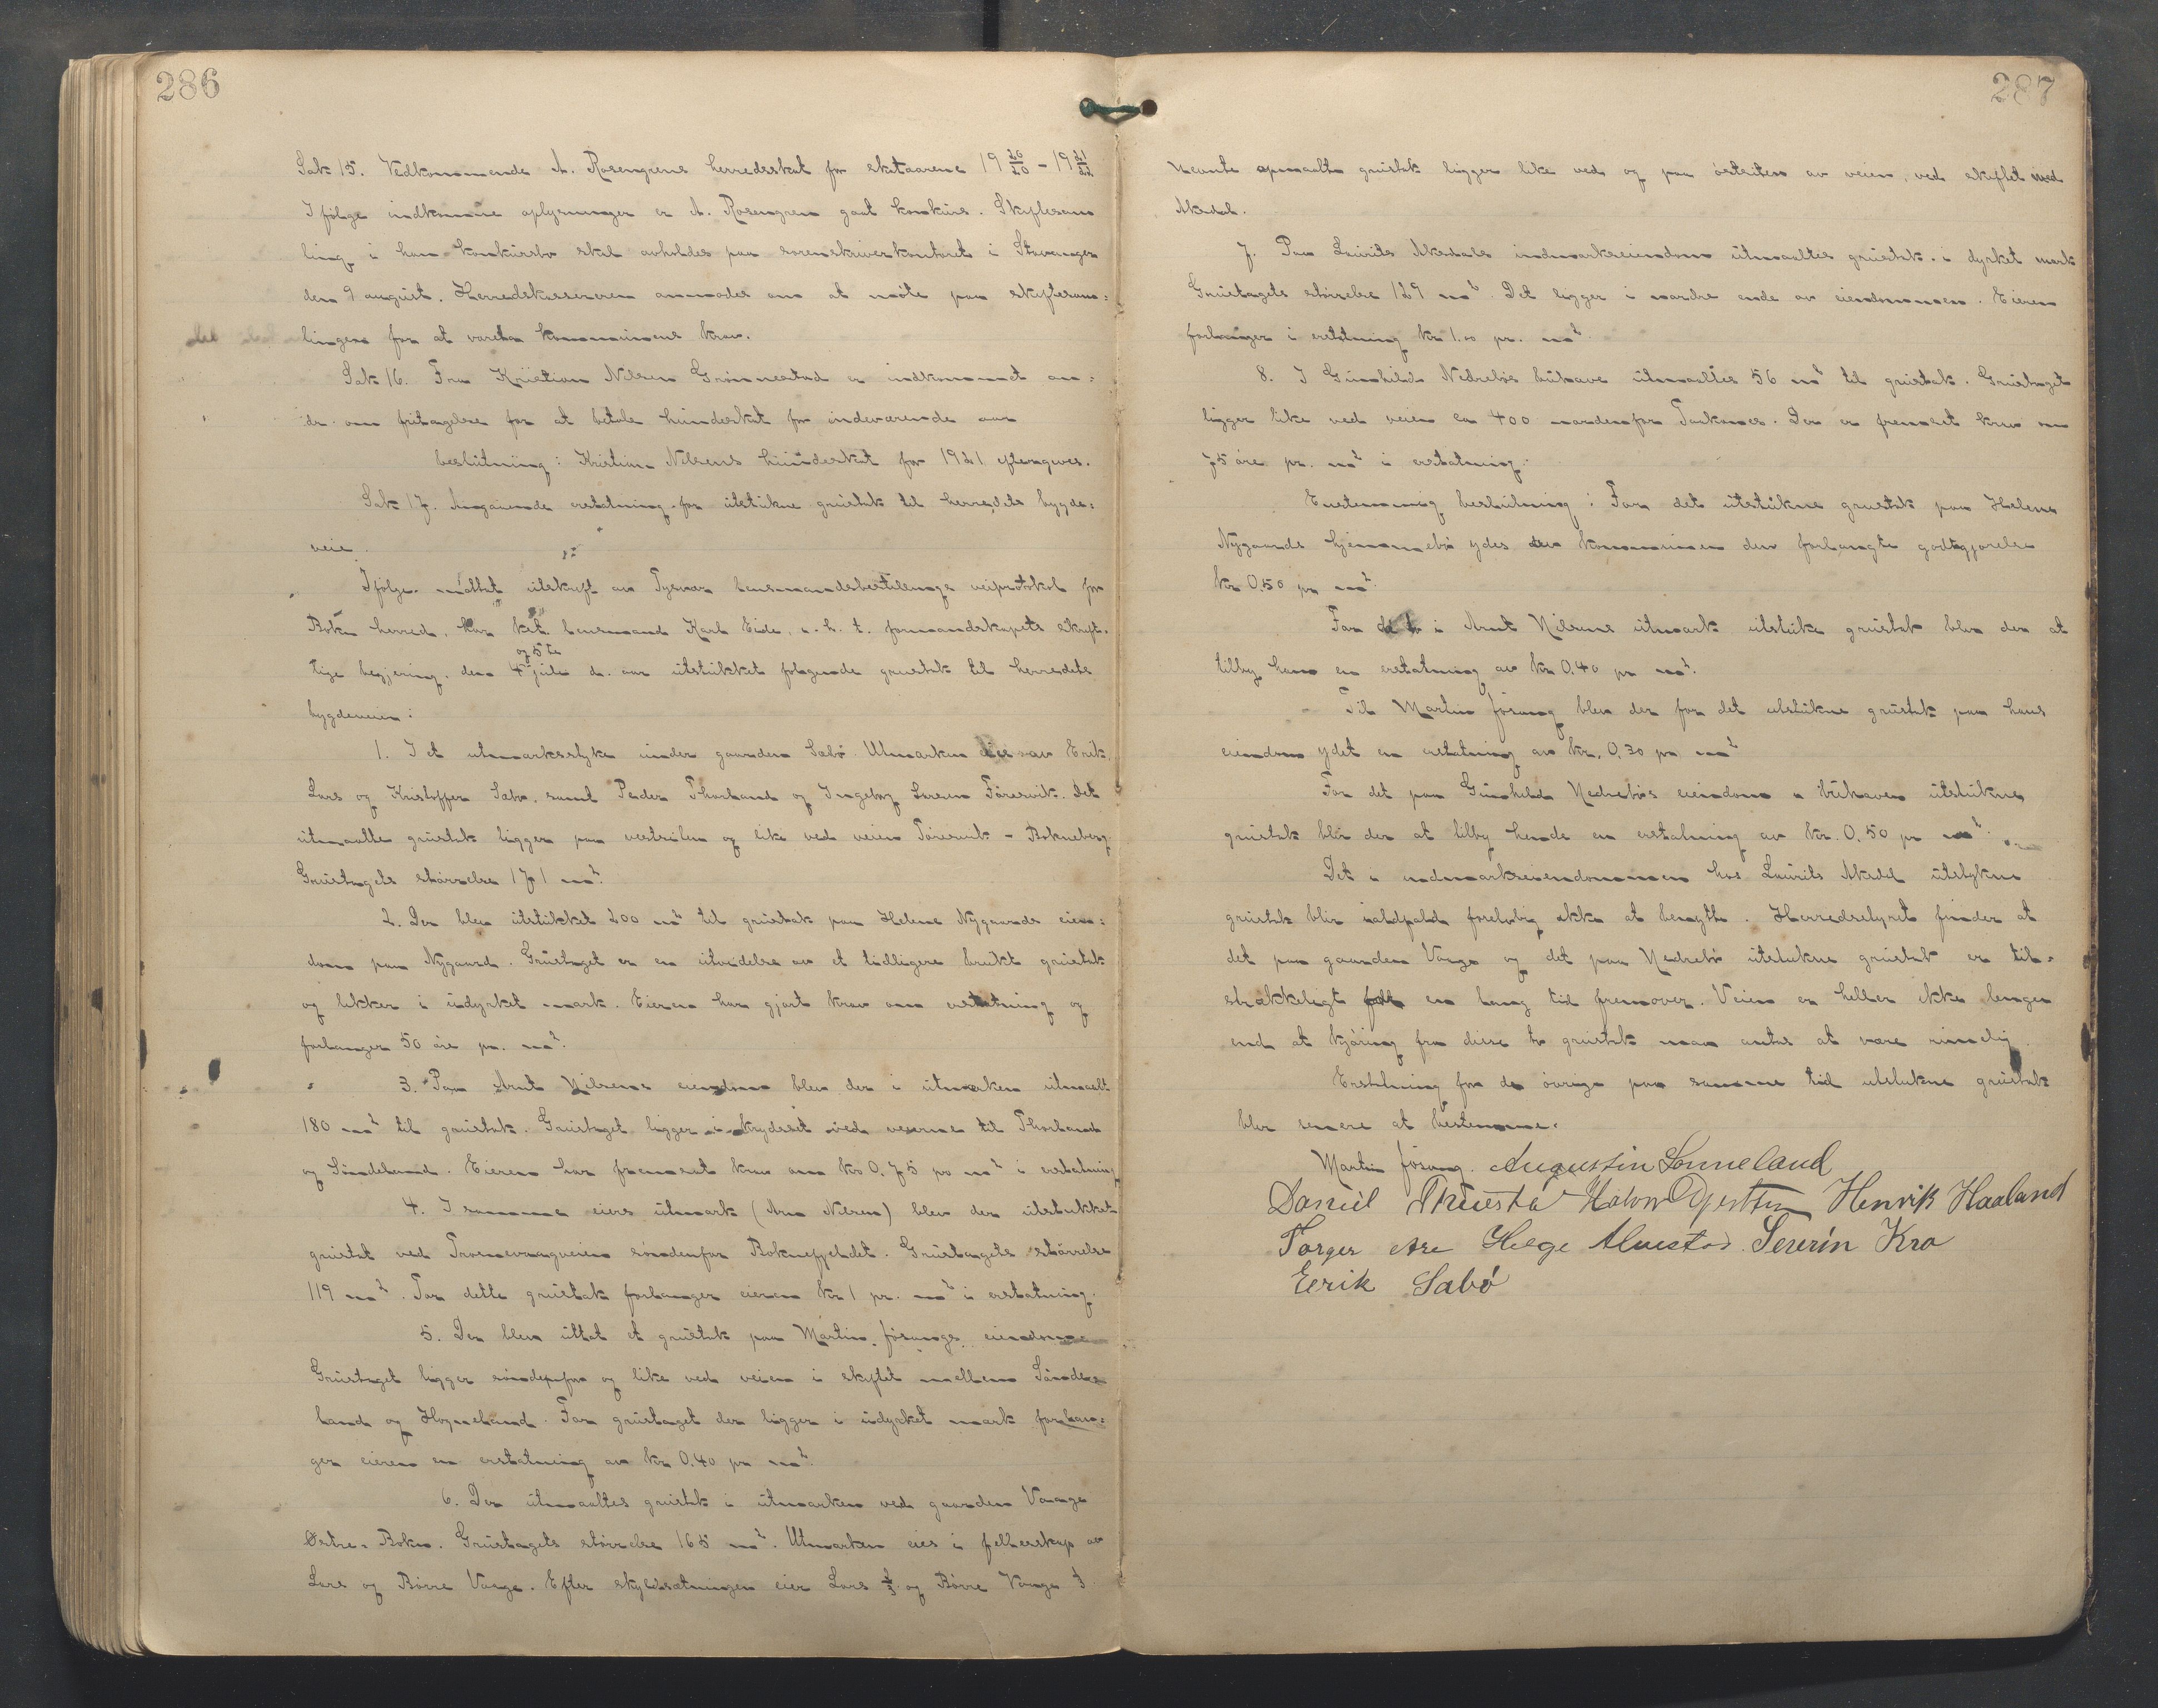 286
Sak 15. Vedkommende A. Rosengrens herredsskat for skataarene 19 20/20 - 19 21/22
Ifølge indkomne oplysninger er A. Rosengren gaat konkurs. Skiftesam
ling i han konkursbo skal avholdes paa sorenskriverkontoret i Stavanger
den 9 august. Herredskassereren anmodes om at møte paa skiftesam=
lingen for at vareta kommunens krav.
Sak 16. Fra Kristian Nilsen Grønnestad er indkommet an=
dr. om fritagelse for at betale hundeskat for indeværende aar
beslutning: Kristian Nilsens hundeskat for 1921 eftergives.
Sak 17. Angaaende erstatning for utstukne grustak til herredets bygde=
veie.
Ifølge mottat utskrift av Tysvær lensmandsbestillings veiprotokol for
Bokn herred, har kst. lensmand Karl Eide, e. h. t. formandskapets skrift.
og 5te
lige begjering. den 4 jule d. aar utstukket følgende grustak til herredets
bygdeveie:
1. I et utmarksstyke under gaarden Sæbø. Utmarken eies av Erik.
Lars og Kristoffer Sæbø. samt Peder Thorland og Ingeborg Larsen Føresvik. Det
utmaalte grustak ligger paa vestsiden og like ved veien Føresvik - Bokneberg.
Grustagets størrelse 171 m2.
2. Der blev utstukket 200 m2 til grustak paa Helene Nygaards eien=
dom paa Nygaard. Grustaget er en utvidelse av et tidligere brukt grustak
og likker i udyrket mark. Eieren har gjort krav om erstatning og
forlanger 50 øre pr. m2.
3. Paa Arnt Nilsens eiendom blev der i utmarken utmaalt
180 m2 til grustak. Grustaget ligger i krydset ved veierne til Thorland
og Søndeland. Eieren har fremsat krav om kr. 0,75 pr m2 i erstatning
4. I samme eiers utmark (Arn Nilsen) blev der utstukket
grustat ved Troenevaagveien søndenfor Boknefjeldet. Grustagets størrelse
119 m2. For dette grustak forlanger eieren kr 1 pr. m2 i erstatning.
5. Der blev uttat et grustak paa Martin Jøsangs eiendom
Grustaget ligger søndenfor og like ved veien i skiftet mellem Sønde=
land og Høyneland. For grustaget der ligger i udyrket mark forlan=
ger eieren en erstatning av kr 0.40 pr m2.
6. Der utmaaltes grustak i utmarken ved gaarden Vaage
Østre-Bokn. Grustagets størrelse 165 m2. Utmarken eies i felleskap av
Lars og Børre Vaage. Efter skyldsætningen eier Lars 2/3 og Børre Vaage 1/3.
287
Nevnte opmaalte grustak ligger like ved og paa østsiten av veien, ved skiftet med
Aksdal.
7. Paa Laurits Aksdals indmarkseiendom utmaaltes grustak i dyrket mark
Grustagets størrelse 129 m2. Det ligger i nordre ende av eiendommen. Eieren
forlanger i erstatning kr 1.00 pr. m2.
8. I Gunhild Nedrebøs buhave utmaaltes 56 m2 til grustak. Grustaget
ligger like ved veien ca 400 nordenfor. Der er fremsat krav om
75 øre pr. m2 i erstatning.
Enstemmig beslutning: For det utstukne grustak paa Helene
Nygaards hjemmebø ydes der kommunen den forlangte godtgjørelse
kr 0,50 pr m2.
For det i Arnt Nilsens utmark utstuke grustak blev der at
tilby ham en erstatning av kr 0.40 pr m2.
Til Martin Jøsang blev der for det utstukne grustak paa hans
eiendom ydet en erstatning av kr. 0,30 pr m2
For det paa Gunhild Nedrebøs eiendom i buhaven utstukne
grustak blir der at tilby hende en erstatning av kr. 0,50 pr m2.
Det i indmarkseiendommen hos Laurits Aksdal utstykne
grustak blir ialdfald foreløbig ikke at benytte. Herredsstyret finder at
det paa gaarden Vaage og det paa Nedrebø utstukne grustak er til=
strækkeligt for en lang tid fremover. Veien er heller ikke lenger
end at kjøring fra disse to grustak maa antas at være rimelig.
Erstatning for de øvrige paa samme tid utstukne grustak
blir senere at bestemme.
Martin Jøsang. Augustin Sønneland
Daniel Henrik Haaland
Torger Are Helge Alvestad. Severin Kro
Eerik Sabø